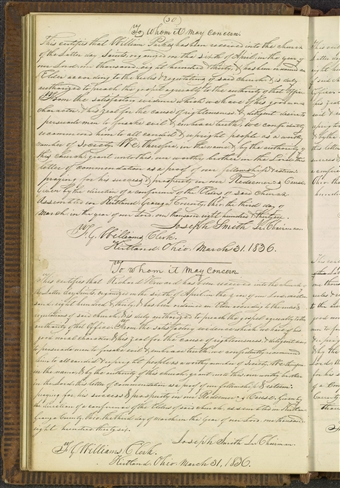 (50)
To Whom it May Concern
This certifies that William Parks has been received into the church
of the Latter day Saints organized on the sixth of April in the year of
our Lord one thousand eight hundred & thirty, & has been ordained an
Elder according to the rules & regulations of said church, & is duly
authorized to preach the gospel agreeably to the authority of that office
From the satisfactory evidence which we have of his good moral
character, & his zeal for the cause of righteousness & diligent desire to
persuade men to forsake evil & embrace truth, we confidently
recommend him to all candid & upright people as a worthy
member of society. We therefore, in the name, & by the authority of
this church, grant unto this our worthy brother in the Lord this
letter of commendation as a proof of our fellowship & esteem:
praying for his success & prosperity in our Redeemer's Cause
Given by the direction of a conference of the Elders of said Church
assembled in Kirtland Geauga County Ohio the third day of
March in the year of our Lord one thousand eight hundred & thirty six.
Joseph Smith Jr Chairman
F. G. Williams Clerk.
Kirtland Ohio March 31, 1836.
To Whom it May Concern
This certifies that
has been received into the church of
the Latter day Saints organized on the sixth of April in the year of our Lord one thousand
eight hundred & thirty, & has been ordained an Elder according to the rules &
regulations of said church, & is duly authorized to preach the gospel agreeably to the
authority of that office. From the satisfactory evidence which we have of his
good moral character, & his zeal for the cause of righteousness, & diligent desire
to persuade men to forsake evil & embrace truth, we confidently recommend
him to all candid & upright people as a worthy member of society. We therefore
in the name, & by the authority of this church, grant unto this our worthy brother
in the Lord, this letter of commendation as a proof of our fellowship & esteem:
praying for his success & prosperity in our Redeemer's Cause. Given by
the direction of a conference of the Elders of said church, assembled in Kirtland
Geauga County Ohio the third day of March in the year of our Lord one thousand
eight hundred & thirty six.
Joseph Smith Jr Chairman
F. G. Williams Clerk.
Kirtland Ohio March 31, 1836.